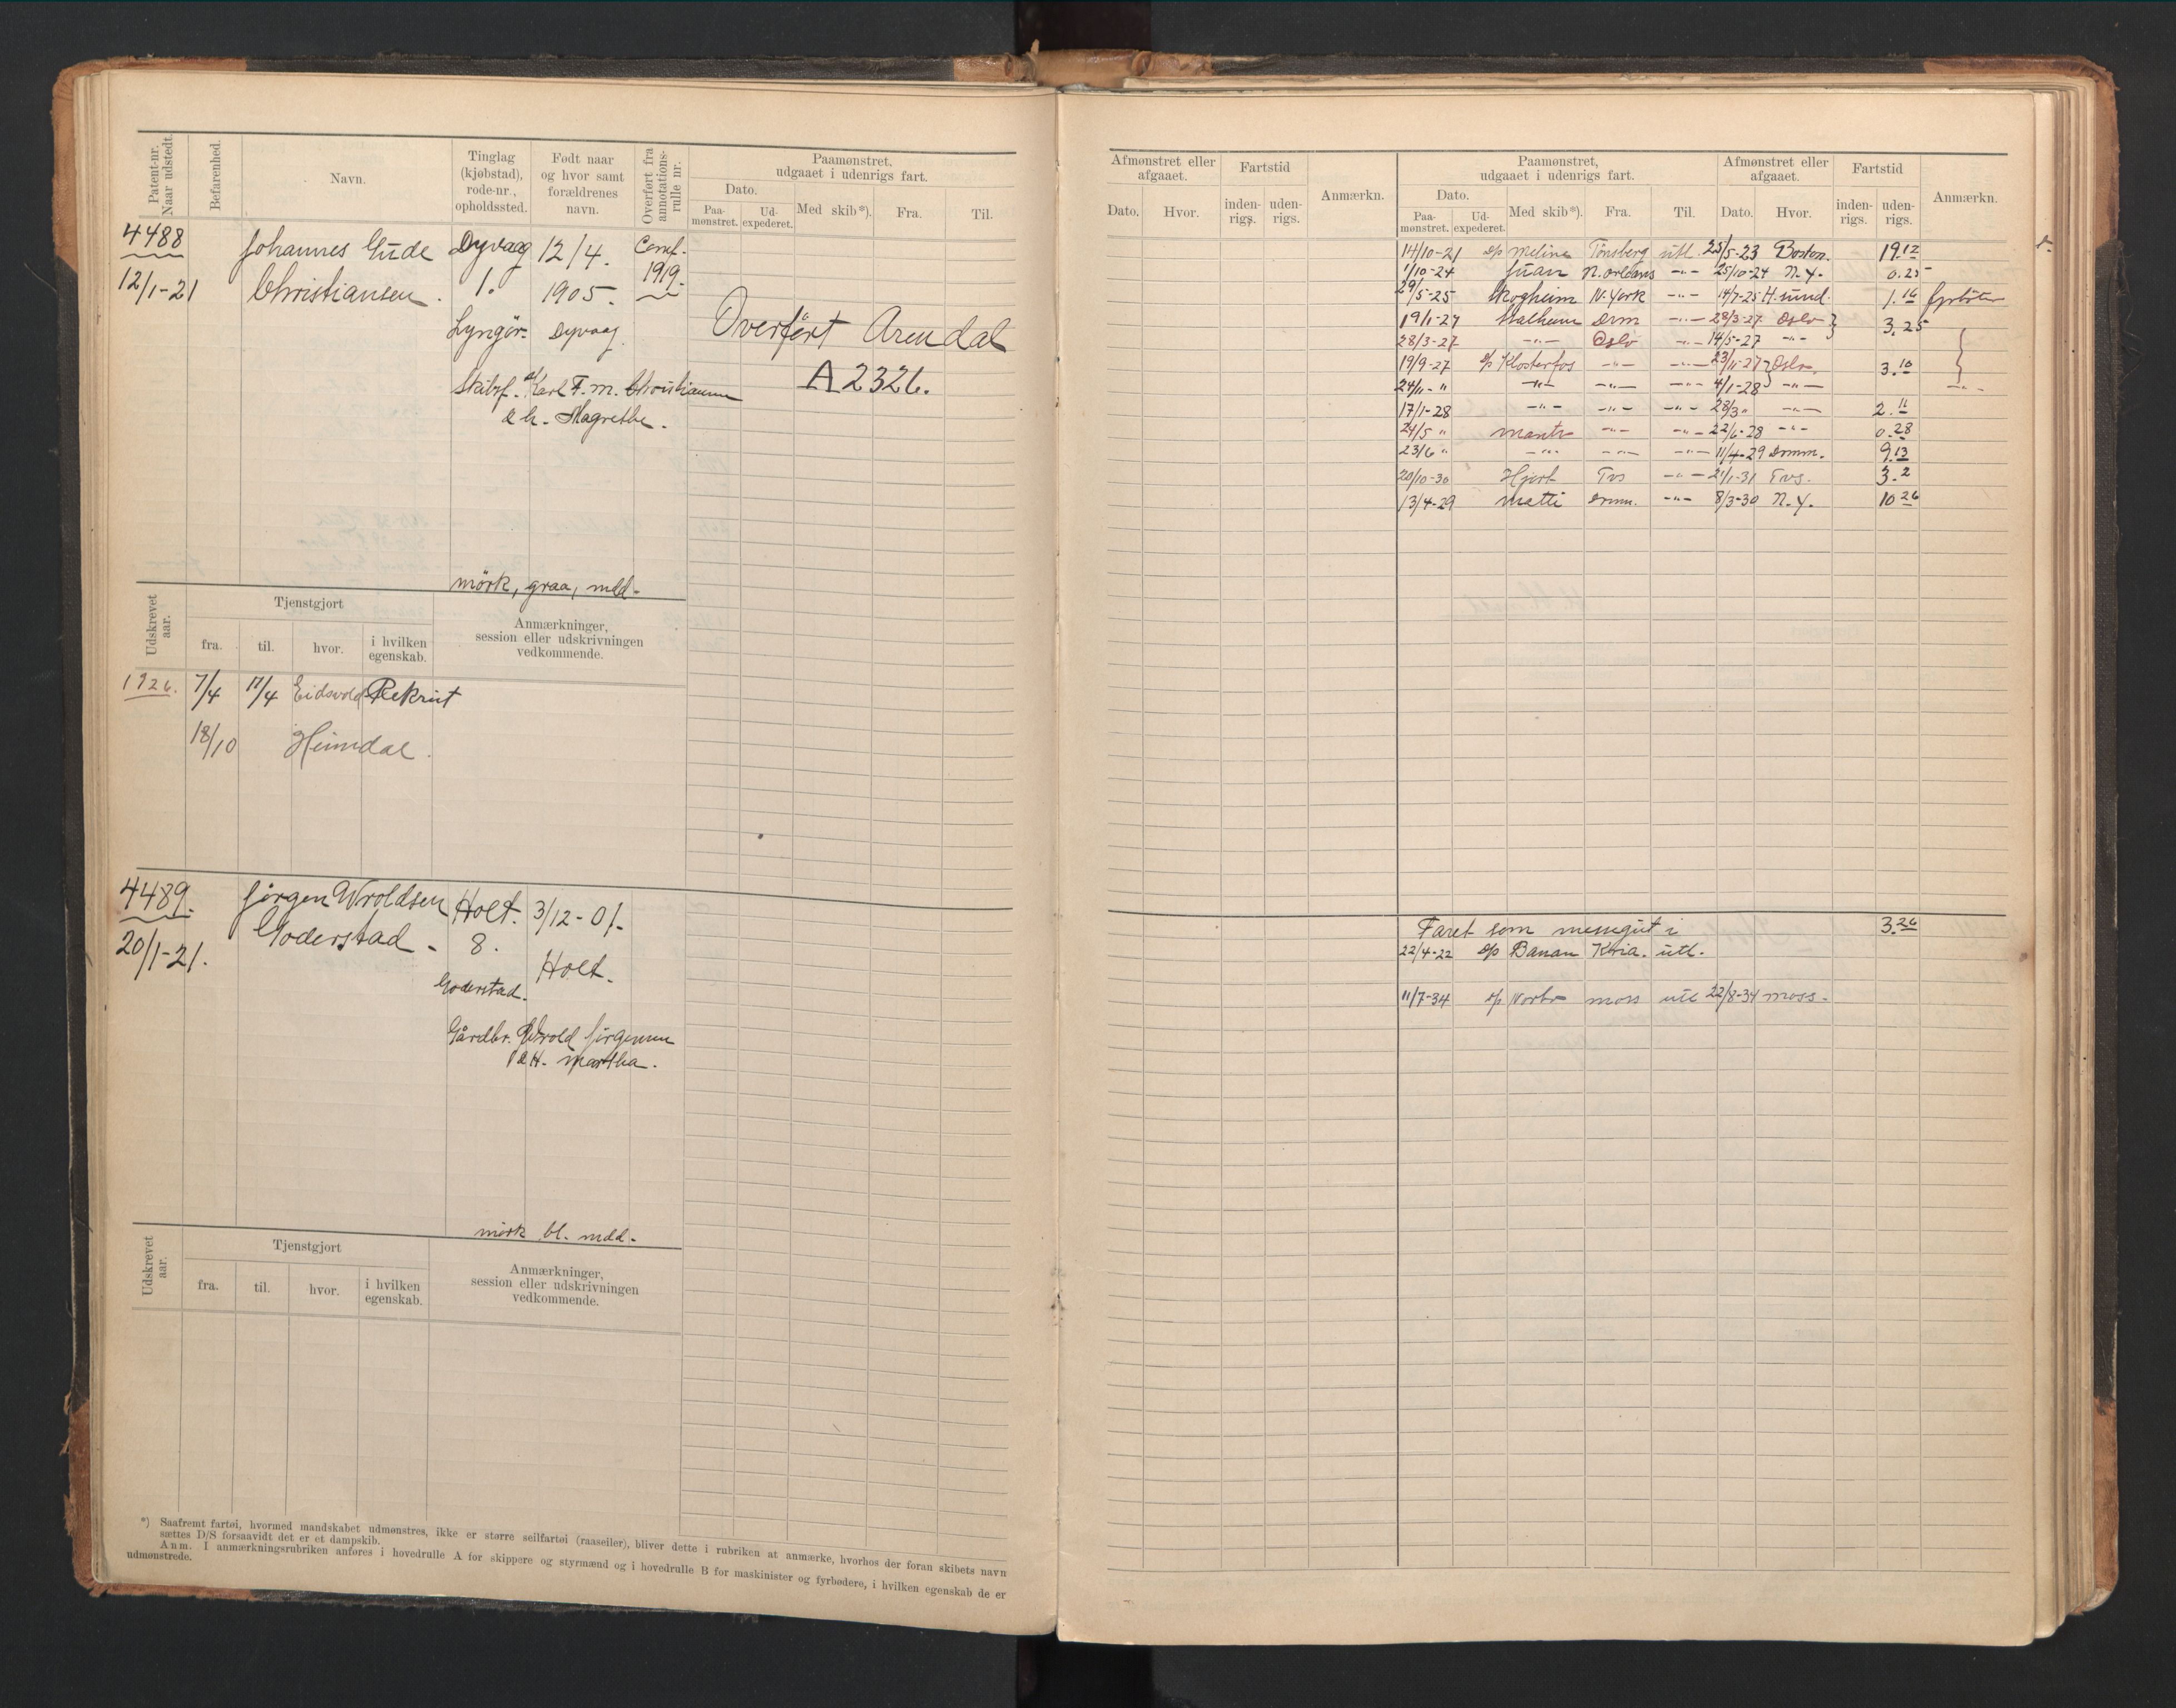 Patent-nr. Naar udstedt.
Befarenhed.
Navn.
Tinglag (kjøbstad), rode-nr., opholdssted.
Født naar og hvor samt forældrenes navn.
Overført fra annotations-rulle nr.
Paamønstret, udgaaet i udenrigs fart.
Dato.
Paa-mønstret. Ud-expederet. Med skib*). Fra. Til.
4488
12/1-21
Johannes Gude
Christiansen.
Dyvaag
1.
Lyngør.
12/4.
1905.
Dyvaag.
1919.
Skibsf. Karl F. M. Christiansen
& h. Magrethe.
Overført Arendal
A 2326.
mörk, graa, mdd.
Udskrevet aar.
Tjenstgjort
fra. til. hvor. i hvilken egenskab.
Anmærkninger, session eller udskrivningen vedkommende.
1926. 7/4 17/4 Eidsvold Rekrut
18/10 Heimdal.
4489.
20/1-21.
Jørgen Wroldsen
Goderstad.
Holt.
8.
Goderstad.
3/12-01.
Holt.
Gårdbr. Wrold Jørgensen
& H. Martha.
mörk bl. mdd.
Udskrevet aar.
Tjenstgjort
fra. til. hvor. i hvilken egenskab.
Anmærkninger, session eller udskrivningen vedkommende.
*) Saafremt fartøi, hvormed mandskabet udmønstres, ikke er større seilfartøi (raaseiler), bliver dette i rubriken at anmærke, hvorhos der foran skibets navn
sættes D/S forsaavidt det er et dampskib.
Anm. I anmærkningsrubriken anføres i hovedrulle A for skippere og styrmænd og i hovedrulle B for maskinister og fyrbødere, i hvilken egenskab de er
udmønstrede.
Afmønstret eller afgaaet.
Dato. Hvor.
Fartstid
inden-rigs. uden-rigs.
Anmærkn.
Paamønstret, udgaaet i udenrigs fart.
Dato.
Paa-mønstret. Ud-expederet. Med skib*). Fra. Til.
Afmønstret eller afgaaet.
Dato. Hvor.
Fartstid
inden-rigs. uden-rigs.
Anmærkn.
14/10-21 d/s Melina Tönsberg utl. 25/5-23 Boston. 19.12
1/10-24 Juan N. Orleans -"- 25/10-24 N.Y. 0.25
29/5-25 Skogheim N. York -"- 14/7-25 H.sund. 1.16 fyrböter
19/1-27 Stalheim Drm -"- 28/3-27 Oslo } 3.25
28/3-27 -"- Oslo -"- 14/5-27 -"-
19/9-27 d/s Klosterfos -"- -"- 23/11-27 Oslo. 3.10
24/11-" -"- -"- -"- 4/1-28 -"- -"-
17/1-28 -"- -"- -"- 28/3 " -"- 2.11
24/5 " -"- -"- 22/6-28 -"- 0.28
23/6 " -"- -"- -"- 11/4-29 Dramm. 9.13
20/10-30 Hjort Tvs -"- 21/1-31 Tvs. 3.2
13/4-29 Matti Dramm. -"- 8/3-30 N.Y. 10 26
Faret som messegut i 3.26
22/4-22 d/s Banan Kria. utl.
11/7-34 d/s Norbr Moss utl 22/8-34 Moss.